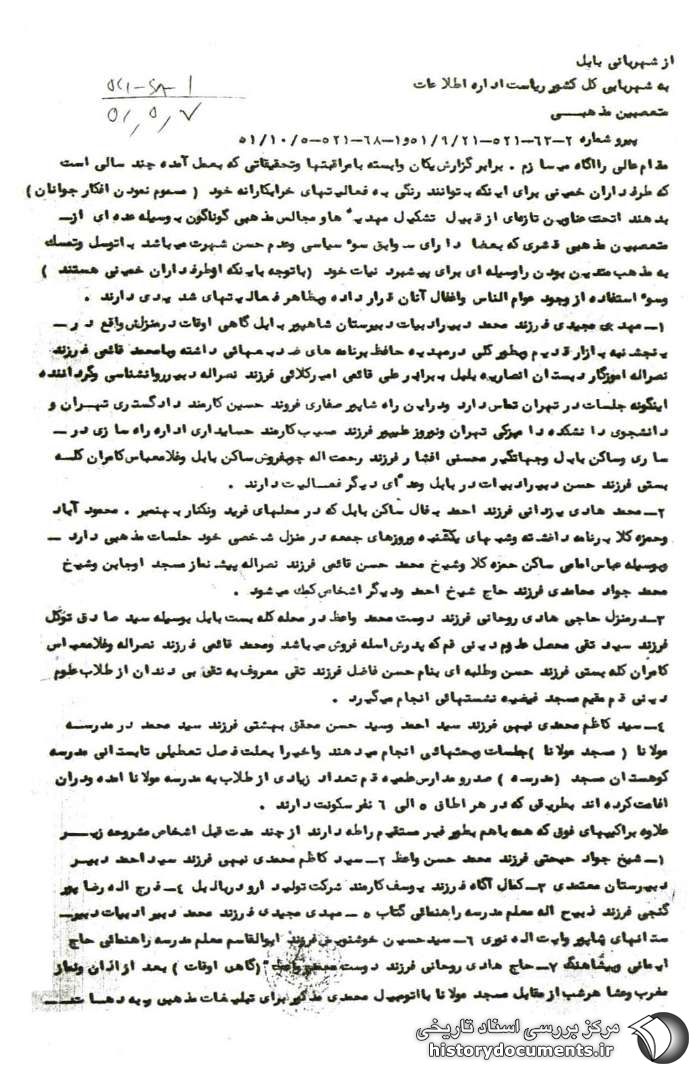 از شهربانی بابل
به شهربانی کل کشور ریاست اداره اطلاعات
متعصبین مذهبی
۵۲۱-۶۸-۱
۵۱٫۵٫۷
پیرو شماره ۲-۶۳-۵۲۱-۵۱/۹/۲۱ و۱-۶۸-۵۲۱-۵۱/۱۰/۵
مقام عالی را آگاه میسازم . برابر گزارش یکان وابسته با مراقبتها و تحقیقاتی که بعمل آمده چند سالی است
که طرفداران خمینی برای اینکه بتوانند رنگی به فعالیتهای خرابکارانه خود ( مسموم نمودن افکار جوانان )
بدهند اتحت عناوین تازه‌ای از قبیل تشکیل مهدیه‌ها و مجالس مذهبی گوناگون بوسیله عده‌ای از-
متعصبین مذهبی قشری که بعضا دارای سوابق سوء سیاسی وعدم حسن شهرت میباشد با توسل وتمسک
به مذهب متدین بودن را وسیله‌ای برای پیشبرد نیات خود (باتوجه باینکه اوطرفداران خمینی هستند )
وسوء استفاده از وجود عوام الناس واغفال آنان قرارداده وبظاهر فعالیتهای شدیدی دارند .
۱- مهدی مجیدی فرزند محمد دبیرادبیات دبیرستان شاهپور بابل گاهی اوقات درمنزلش واقع در-
پنجشنبه بازار قدیم وبطور کلی درمهدیه حافظ برنامه‌های ضد بهائی داشته وبامحمد قائمی فرزند
نصراله اموزگار دبستان انصاریه بابل برابر علی قائمی امیرکلائی فرزند نصراله دبیر روانشناسی وگرداننده
اینگونه جلسات در تهران تماس دارد ودراین راه شاپور صفاری فروند حسین کارمند دادگستری تهران و
دانشجوی دانشکده دامپزکی تهران ونوروز طبیبپور فرزند صیب کارمند حسابداری اداره راه سازی در-
ساری وساکن بابل وجهانگیر محسنی افشار فرزند رحمت اله چوبفروش ساکن بابل وغلامعباس کامران کله
بستی فرزند حسن دبیرادبیات در بابل وعده‌ای دیگر فعالیت دارند .
۲- محمد هادی یزدانی فرزند احمد بقال ساکن بابل که در محلهای فرید ونکنار بهنمیر . محمود آباد
وحمزه کلا برنامه داشته وشبهای یکشنبه وروزهای جمعه در منزل شخصی خود جلسات مذهبی دارد -
وبوسیله عباس امامی ساکن حمزه کلا وشیخ محمد حسن قائمی فرزند نصراله پیشنماز مسجد اوجابن وشیخ
محمد جواد محامدی فرزند حاج شیخ احمد ودیگر اشخاص کمک میشود .
۳-درمنزل حاجی هادی روحانی فرزند دوست محمد واعظ در محله کله بست بابل بوسیله سید صادق توکل
فرزند سید تقی محصل علوم دینی قم که پدرش اسله فروش میباشد ومحمد قائمی فرزند نصراله وغلامعباس
کامران کله بستی فرزند حسن وطلبه‌ای بنام حسن فاضل فرزند تقی معروف به تقی بی دندان از طلاب علوم
دینی قم مقیم مسجد فیضیه نشستهائی انجام میگیرد .
۴- سید کاظم محمدی نیهی فرزند سید احمد وسید حسن محقق بهشتی فرزند سید محمد در مدرسه
مولانا ( مسجد مولانا )جلسات وبحثهائی انجام میدهند واخیرا بعلت فصل تعطیلی تابستانی مدرسه
کوهستان مسجد (مدرسه ) صدرو مدارس علمیه قم تعداد زیادی از طلاب به مدرسه مولانا امده ودران
اقامت کرده‌اند بطریقی که در هر اطاق ۵ الی ۶ نفر سکونت دارند .
علاوه براکیپهای فوق که همه باهم بطور غیر مستقیم رابطه دارند از چند مدت قبل اشخاص مشروحه زیر
۱- شیخ جواد حیحتی فرزند محمد حسن واعظ ۲- سید کاظم محمدی نیهی فرزند سید احمد دبیر
دبیرستان معتمدی ۳- کمال آگاه فرزند یوسف کارمند شرکت تولید ارو دریابل ۴- فرج اله رضا پور
گنجی فرزند ذبیح اله معلم مدرسه راهنمائی کتاب ۵- مهدی مجیدی فرزند محمد دبیر ادبیات دبیر-
ستانهای شاپور وایت اله نوری ۶- سید حسین خوشنویس فرزند ابوالقاسم معلم مدرسه راهنمائی حاج
ایمانی وپیشاهنگ ۷- حاج هادی روحانی فرزند دوست محمد واعظ (گاهی اوقات ) بعد از اذان ونماز
مغرب وعشا هرشب از مقابل مسجد مولانا با اتومبیل محمدی مذکور برای تبلیغات مذهبی وبه دهات
مرکز بررسی اسناد تاریخی
historydocuments.ir